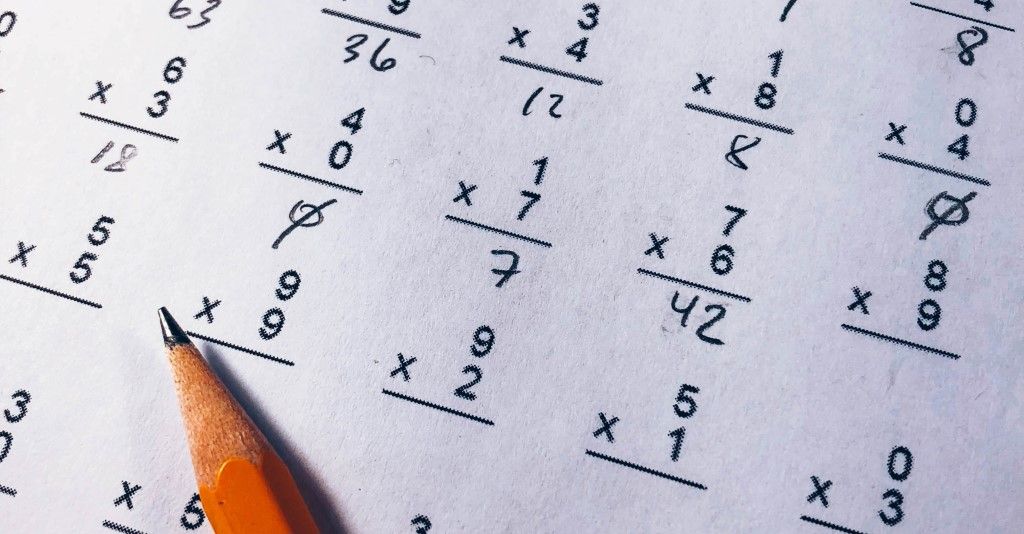 63
9
36
3
x 4
12
8
6
x 3
18
4
x 0
0
1
x 7
7
1
x 8
8
0
x 4
0
5
x 5
9
x 9
9
x 2
7
x 6
42
8
x 9
5
x 1
0
x 3
3
x 5
3